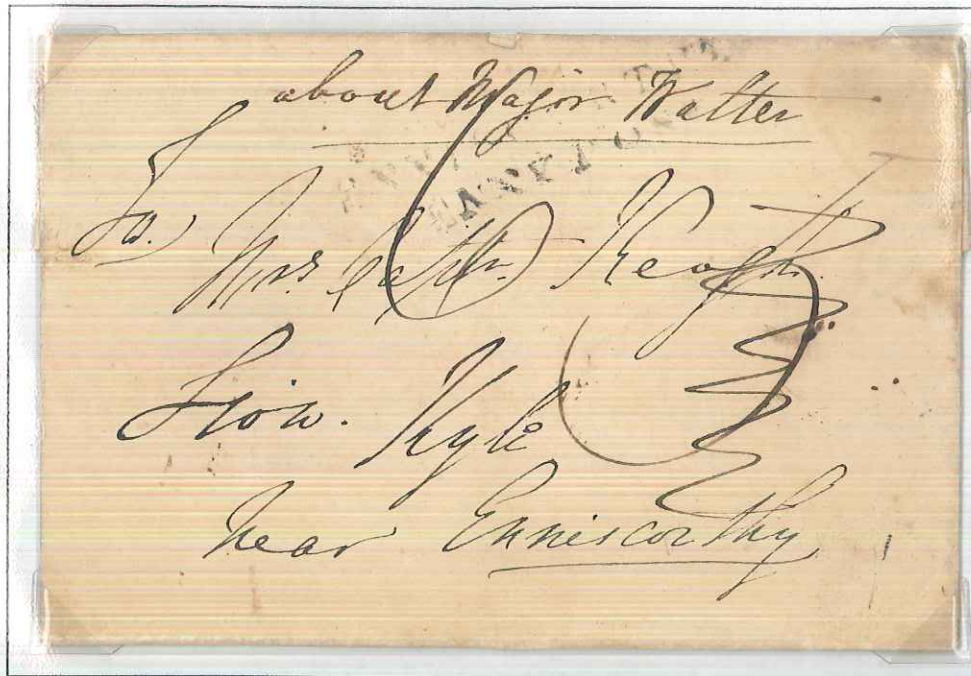 about Major Walter
To.
Mrs Cathn. Keogh.
Kyle
near Enniscorthy